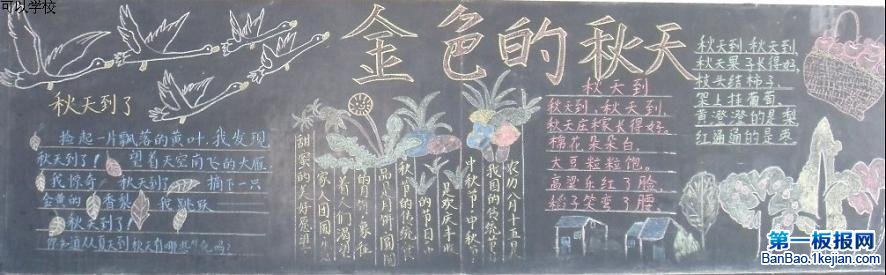 可以学校
金色的秋天
秋天到了
捡起一片飘落的黄叶,我发现
秋天到了! 望着天空南飞的大雁
我惊奇! 秋天到了 摘下一只
金黄的 香梨 我跳跃
秋天到了!
你知道从夏天到秋天有哪些 吗?
农历八月十五是
我国的传统节日
中秋节,中秋节
是欢庆丰收
的节日,中
秋节的传统食
品是月饼,圆圆
的月饼,象征
着人们渴望
家人团圆,
甜蜜的美好愿望
秋天到
秋天到,秋天到,
秋天庄稼长得好。
棉花朵朵白,
大豆粒粒饱。
高粱乐红了脸,
稻子笑弯了腰
秋天到,秋天到,
秋天果子长得好,
枝头结柿子,
架上挂葡萄,
黄澄澄的是梨
红通通的是枣
第一板报网
BanBao.1kejian.com